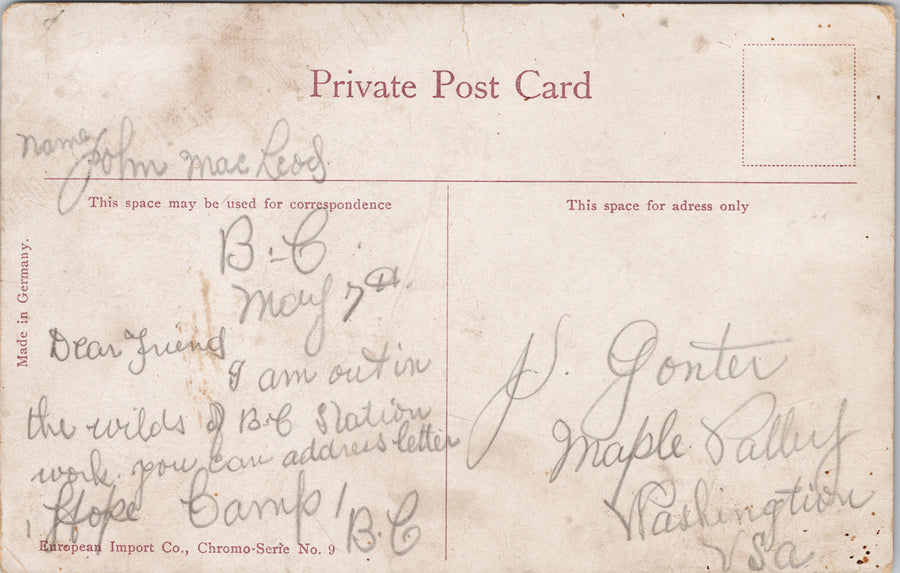 Private Post Card
name John MacLeod
This space may be used for correspondence
This space for adress only
Made in Germany.
B-C
May 7th.
Dear Friend
I am out in
the wilds of B-C Station
work. you can address letter
Hope Camp 1
B.C
J. Gonter
Maple Valley
Washingtion
USa
European Import Co., Chromo-Serie No. 9